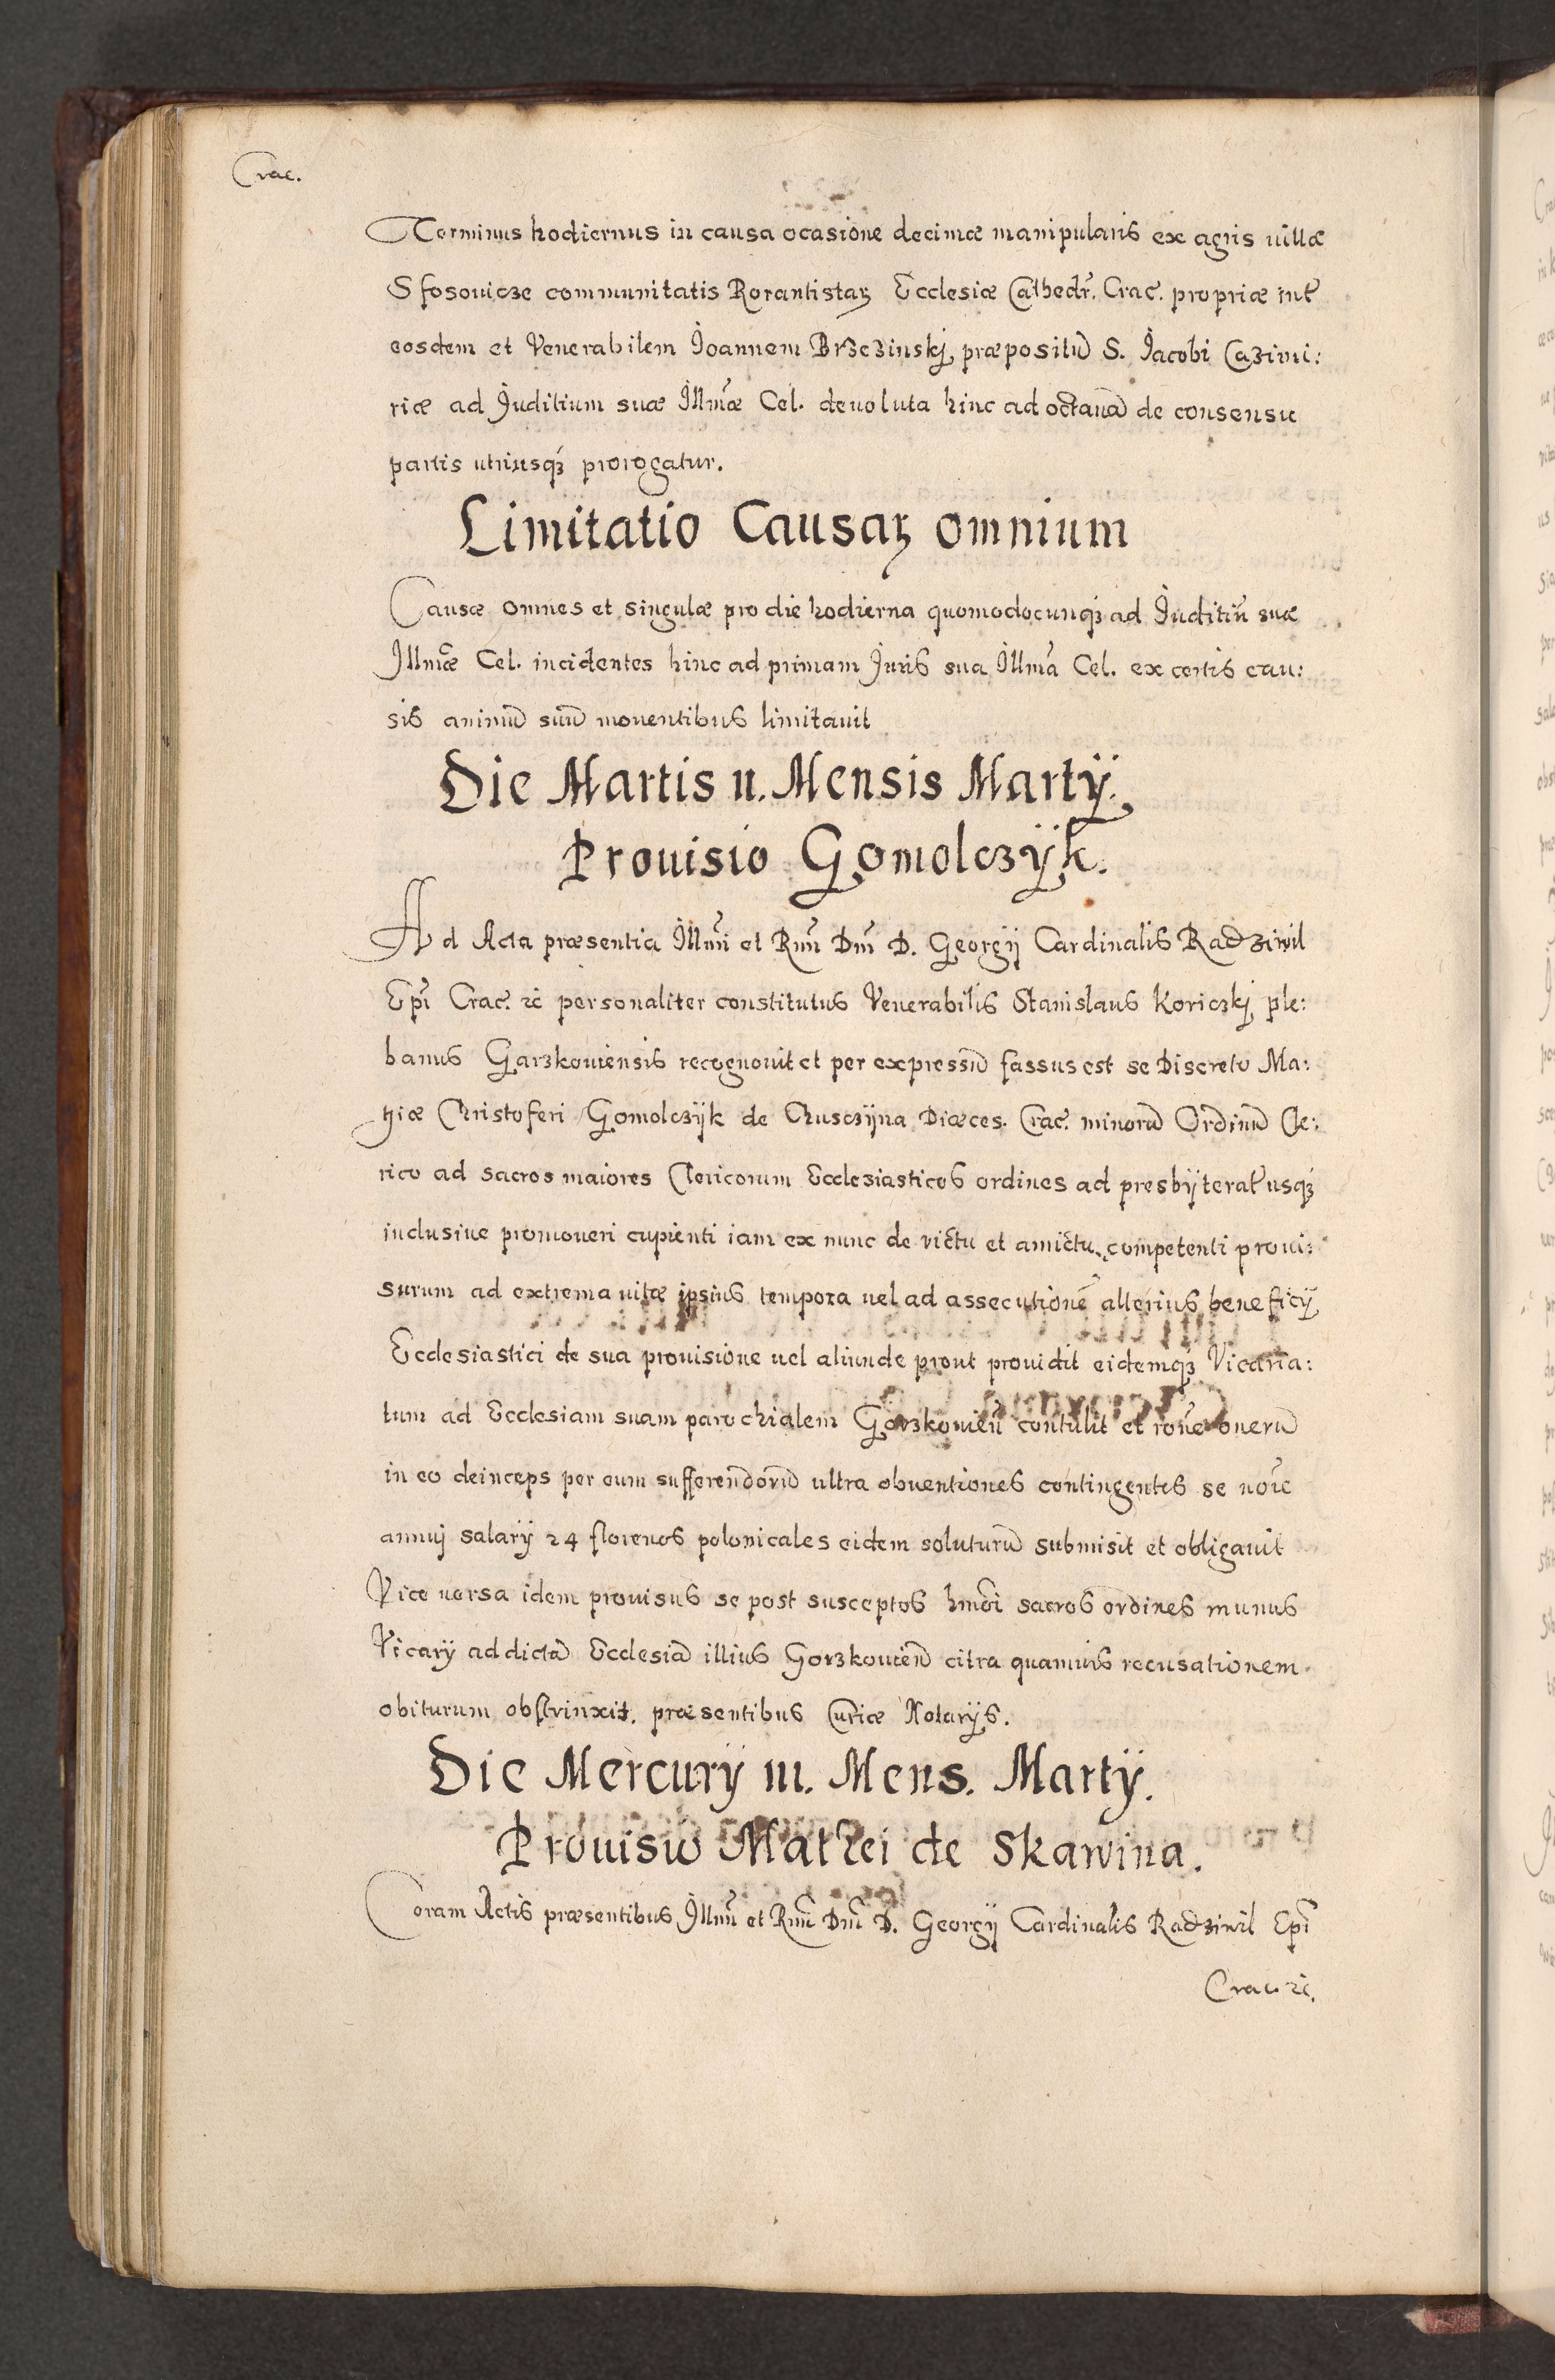 Crac.
Terminus hodiernus in causa ocasione decimæ manipularis ex agris uillæ
Sfosouicze communitatis Rorantistaꝝ Ecclesiæ Cathedr̃. Crac̃. propriæ int̃
eosdem et Venerabilem Joannem Brzezinskj præpositũ S. Jacobi Cazimi:
riæ ad Juditium suæ Illm̃æ Cel. deuoluta hinc ad octauã de consensu
partis utriusq́ꝫ prorogatur.
Limitatio Causaꝝ omnium
Causæ omnes et singulæ pro die hodierna quomodocunq́ꝫ ad Juditiũ suæ
Illm̃æ Cel. incidentes hinc ad primam Juris sua Illm̃a Cel. ex certis cau:
sis animũ suũ mouentibus limitauit
Die Martis II. Mensis Martÿ.
Prouisio Gomolczÿk.
Ad Acta præsentia Illmĩ et Rm̃i Dm̃i D. Georgÿ Cardinalis Radziwil
Epĩ Crac̃. ꝛc personaliter constitutus Venerabilis Stanislaus Koriczkj ple:
banus Garzkouiensis recognouit et per expressũ fassus est se Discreto Ma:
thiæ Christoferi Gomolczÿk de Chusczÿna Diæces. Crac̃. minorũ Ordinũ Cle:
rico ad sacros maiores Clericorum Ecclesiasticos ordines ad presbÿterat̃ usq́ꝫ
inclusiue promoueri cupienti iam ex nunc de victu et amictu competenti proui:
surum ad extrema uitæ ipsius tempora uel ad assecutionẽ alterius beneficÿ
Ecclesiastici de sua prouisione uel aliunde prout prouidit eidemq́ꝫ Vicaria:
tum ad Ecclesiam suam parochialem Gorzkouieñ contulit et rõne onerũ
in eo deinceps per eum sufferendorũ ultra obuentiones contingentes se noĩe
annuj salarÿ 24 florenos polonicales eidem soluturũ submisit et obligauit
Vice uersa idem prouisus se post susceptos hmõi sacros ordines munus
Vicarÿ ad dictã Ecclesiã illius Gorzkouieñ citra quamuis recusationem
obiturum obstrinxit. præsentibus Curiæ Notarÿs.
Die Mercurÿ III. Mens. Martÿ.
Prouisio Mathei de Skawina.
Coram Actis præsentibus Illm̃i et Rm̃i Dm̃i D. Georgÿ Cardinalis Radziwil Epĩ
Crac. ꝛc.